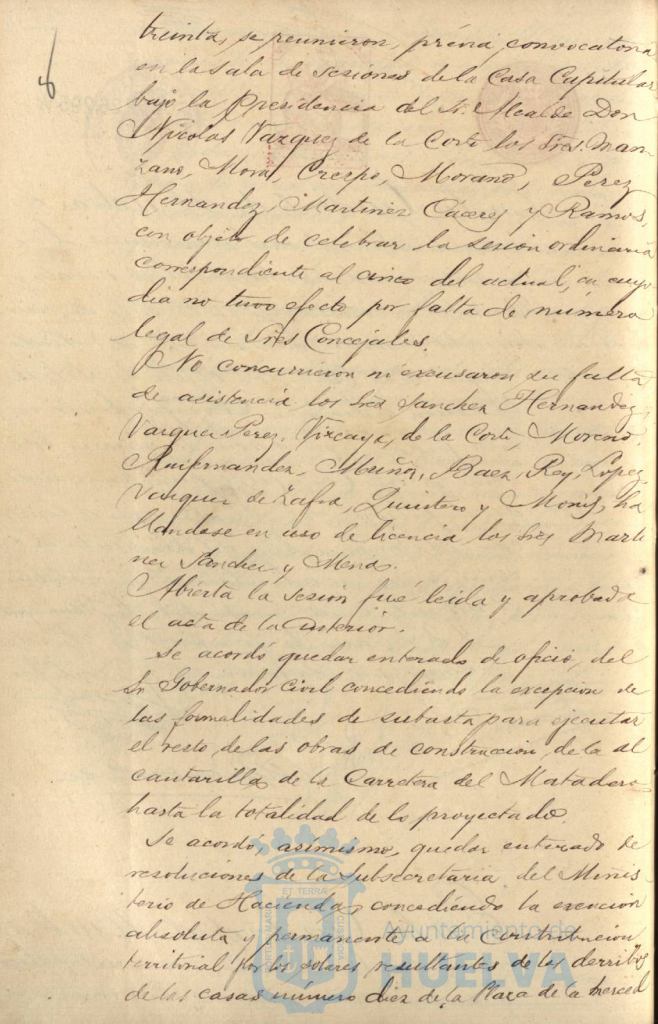 8
treinta, se reunieron, prévia convocatoria
en la Sala de sesiones de la Casa Capitular
bajo la Presidencia del Sr. Alcalde Don
Nicolas Vazquez de la Corte los Sres. Man-
zano, Mora, Crespo, Morano, Perez
Hernandez, Martinez Cáceres y Ramos,
con objeto de celebrar la sesion ordinaria
correspondiente al cinco del actual, en cuyo
dia no tuvo efecto por falta de número
legal de Sres Concejales.
No concurrieron ni excusaron su falta
de asistencia los Sres Sanchez Hernandez,
Vazquez Perez, Vizcaya, de la Corte, Moreno,
Ruifernandez, Muñoz, Baez, Rey, Lopez,
Vazquez de Zafra, Quintero y Monis, ha
llandose en uso de licencia los Sres Marti
nez Sanchez y Mena.
Abierta la sesion fué leida y aprobada
el acta de la anterior.
Se acordó quedar enterado de oficio, del
Sr. Gobernador Civil concediendo la excepcion de
las formalidades de subasta para ejecutar
el resto de las obras de construccion de la al
cantarilla de la Carretera del Matadero
hasta la totalidad de lo proyectado.
Se acordó, asimismo, quedar enterado de
resoluciones de la Subsecretaria del Minis
terio de Hacienda, concediendo la exencion
absoluta y permanente a la Contribucion
territorial por los solares resultantes de los derribos
de las casas número diez de la Plaza de la Merced
ET TERRÆ
Ayuntamiento de
HUELVA